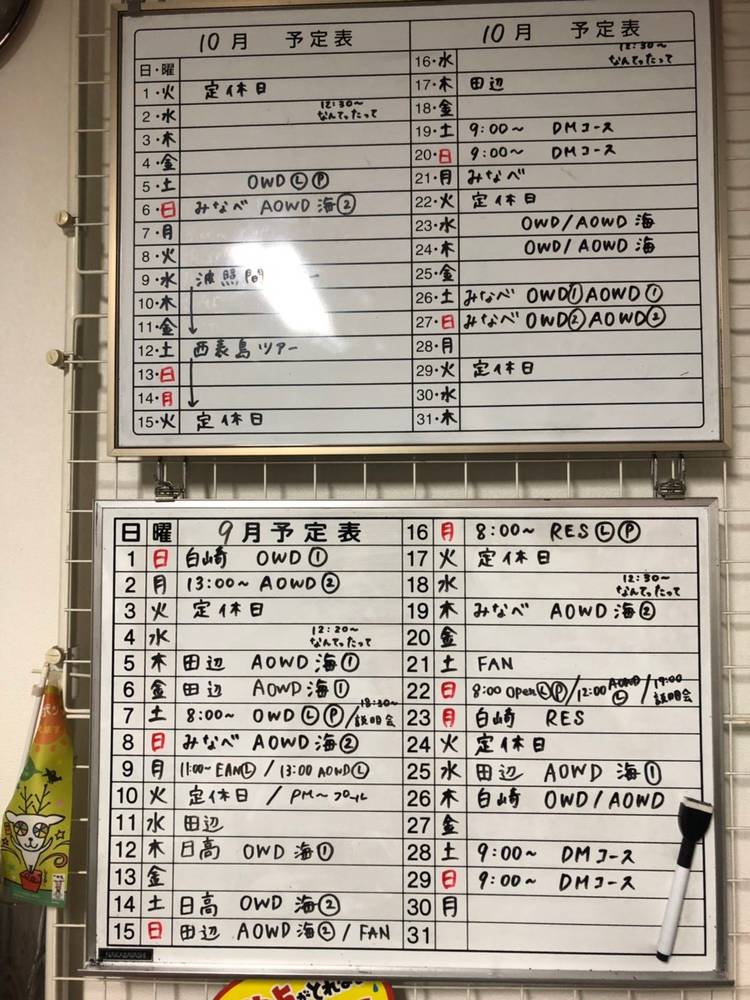 10月 予定表
日・曜
1・火 定休日
2・水 12:30~ なんてったって
3・木
4・金
5・土 OWD Ⓛ Ⓟ
6・日 みなべ AOWD 海②
7・月
8・火
9・水 波照間ツアー
10・木
11・金
12・土 西表島ツアー
13・日
14・月
15・火 定休日
10月 予定表
16・水 12:30~ なんてったって
17・木 田辺
18・金
19・土 9:00~ DMコース
20・日 9:00~ DMコース
21・月 みなべ
22・火 定休日
23・水 OWD/AOWD 海
24・木 OWD/AOWD 海
25・金
26・土 みなべ OWD①AOWD①
27・日 みなべ OWD②AOWD②
28・月
29・火 定休日
30・水
31・木
日 曜 9月予定表
1 日 白崎 OWD①
2 月 13:00~ AOWD②
3 火 定休日
4 水 12:20~ なんてったって
5 木 田辺 AOWD 海①
6 金 田辺 AOWD 海①
7 土 8:00~ OWD Ⓛ Ⓟ/18:30~ 説明会
8 日 みなべ AOWD 海②
9 月 11:00~ EANⓁ / 13:00 AOWDⓁ
10 火 定休日 / PM~プール
11 水 田辺
12 木 日高 OWD 海①
13 金
14 土 日高 OWD 海②
15 日 田辺 AOWD 海② / FAN
16 月 8:00~ RES Ⓛ Ⓟ
17 火 定休日
18 水 12:30~ なんてったって
19 木 みなべ AOWD 海②
20 金
21 土 FAN
22 日 8:00 OpenⓁⓅ/12:00 AOWDⓁ/19:00 説明会
23 月 白崎 RES
24 火 定休日
25 水 田辺 AOWD 海①
26 木 白崎 OWD/AOWD
27 金
28 土 9:00~ DMコース
29 日 9:00~ DMコース
30 月
31
NAKABAYASHI